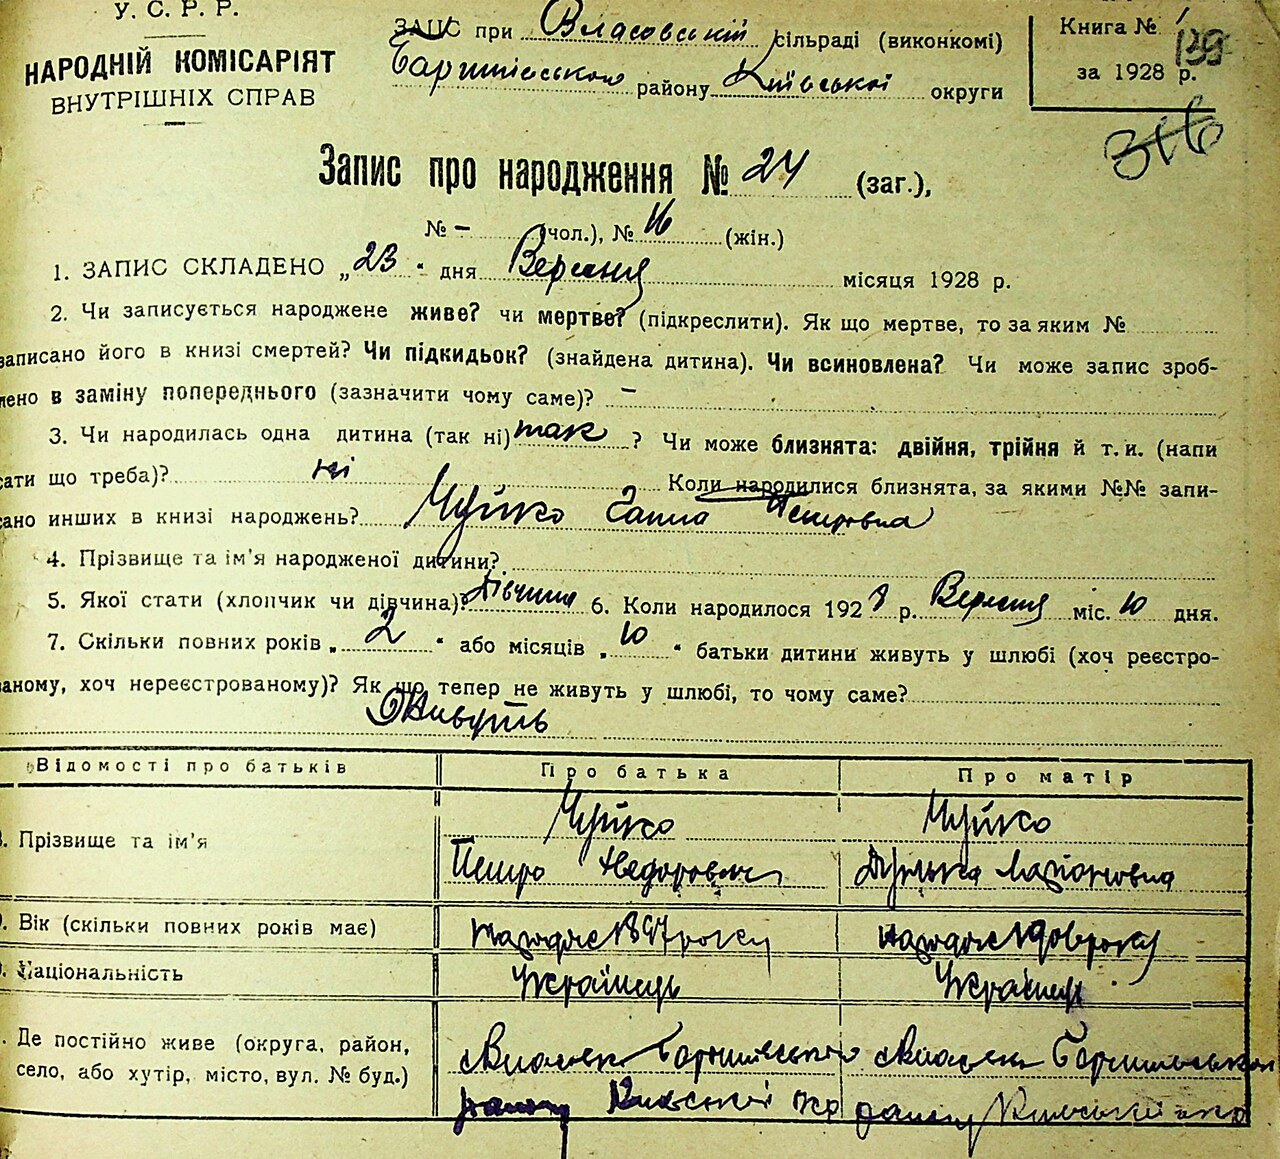 У. С. Р. Р.
НАРОДНІЙ КОМІСАРІЯТ
ВНУТРІШНІХ СПРАВ
ЗАПС при Власовській сільраді (виконкомі)
Баришівського району Київської округи
Книга № 1
139
за 1928 р.
316
Запис про народження № 24 (заг.),
№ – (чол.), № 16 (жін.)
1. ЗАПИС СКЛАДЕНО „23“ дня Вересня місяця 1928 р.
2. Чи записується народжене живе? чи мертве? (підкреслити). Як що мертве, то за яким №
записано його в книзі смертей? Чи підкидьок? (знайдена дитина). Чи всиновлена? Чи може запис зроб-
лено в заміну попереднього (зазначити чому саме)? –
3. Чи народилась одна дитина (так ні) так ? Чи може близнята: двійня, трійня й т. и. (напи
сати що треба)? ні Коли народилися близнята, за якими №№ запи-
сано инших в книзі народжень? Чуйко Ганна Петровна
4. Прізвище та ім'я народженої дитини?
5. Якої стати (хлопчик чи дівчина)? Дівчина 6. Коли народилось 1928 р. Вересня міс. 10 дня.
7. Скільки повних років „ 2 “ або місяців „ 10 “ батьки дитини живуть у шлюбі (хоч реєстро-
ваному, хоч нереєстрованому)? Як що тепер не живуть у шлюбі, то чому саме?
Живуть
Відомості про батьків Про батька Про матір
8. Прізвище та ім'я Чуйко Чуйко
Петро Федорович
9. Вік (скільки повних років має) народж 1897 року народж року
Національність Українець Українець
Де постійно живе (округа, район,
село, або хутір, місто, вул. № буд.) Баришівського Баришівського
району Київської окр району Київської окр